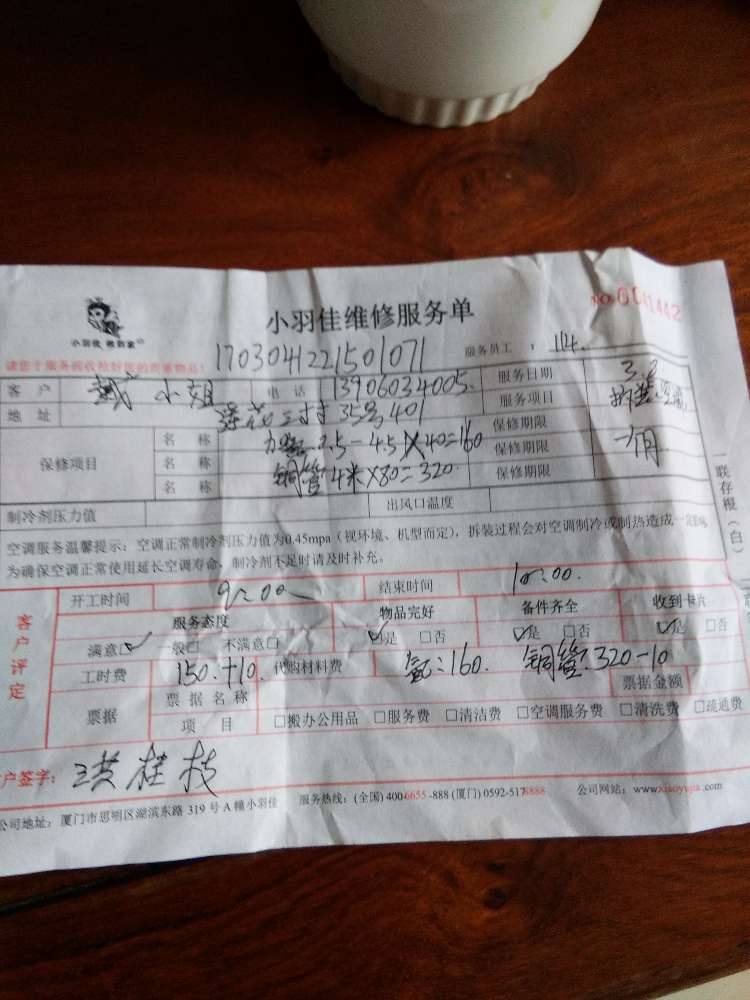 小羽佳维修服务单
NO.0041442
小羽佳 搬到家
170304221501071
服务员工 : 114.
客户 戴小姐 电话 13906034005. 服务日期 3.
地址 莲花三村35号401 服务项目
保修项目
名称 2.5-4.5 X40=160 保修期限
名称 铜管4米X80=320. 保修期限 一个月
名称 保修期限
制冷剂压力值 出风口温度
空调服务温馨提示:空调正常制冷剂压力值为0.45mpa(视环境、机型而定),拆装过程会对空调制冷或制热造成一定影响
为确保空调正常使用延长空调寿命,制冷剂不足时请及时补充。
一联存根(白)
客户评定
开工时间 9:00 结束时间 10:00.
服务态度 物品完好 备件齐全 收到卡片
满意☑ 一般□ 不满意□ ☑是 □否 ☑是 □否 ☑是 □否
工时费 150.+10. 代购材料费 氟:160. 铜管:320-10
票据 票据名称 票据金额
项目 □搬办公用品 □服务费 □清洁费 □空调服务费 □清洗费 □疏通费
户签字: 洪桂枝
公司地址:厦门市思明区湖滨东路319号A幢小羽佳 服务热线:(全国)400-6655-888(厦门)0592-5178888 公司网站:www.xiaoyujia.com